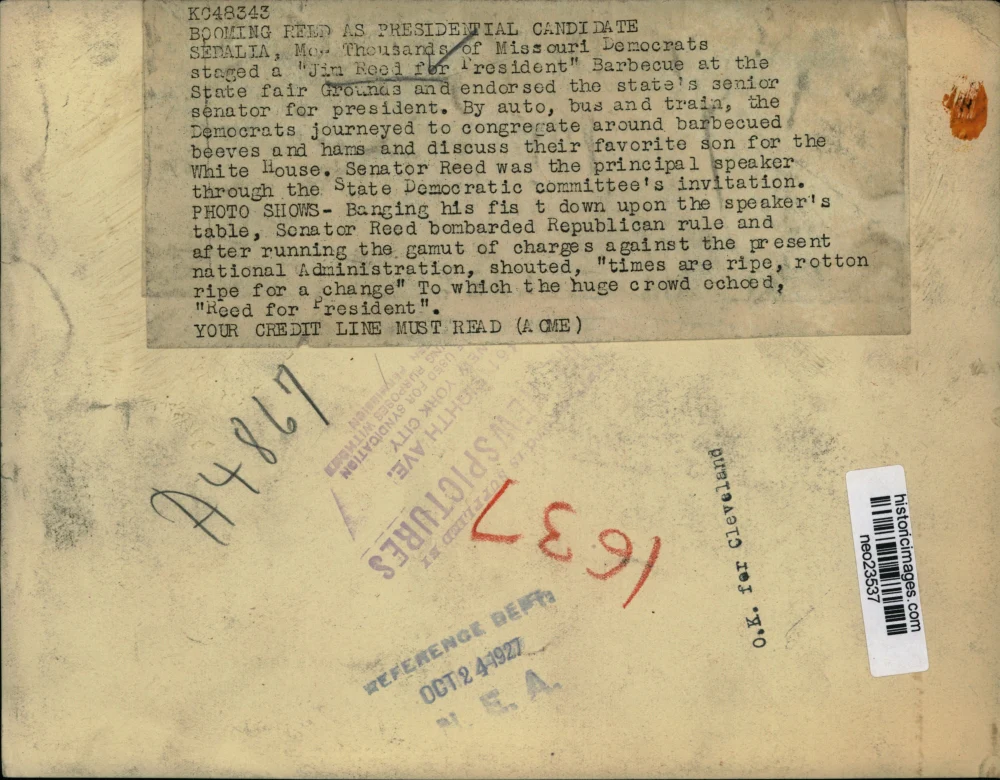 KC48343
BOOMING REED AS PRESIDENTIAL CANDIDATE
SEDALIA, Mo.- Thousands of Missouri Democrats
staged a "Jim Reed for President" Barbecue at the
State fair Grounds and endorsed the state's senior
senator for president. By auto, bus and train, the
Democrats journeyed to congregate around barbecued
beeves and hams and discuss their favorite son for the
White House. Senator Reed was the principal speaker
through the State Democratic committee's invitation.
PHOTO SHOWS- Banging his fis t down upon the speaker's
table, Senator Reed bombarded Republican rule and
after running the gamut of charges against the present
national Administration, shouted, "times are ripe, rotton
ripe for a change" To which the huge crowd echoed,
"Reed for President".
YOUR CREDIT LINE MUST READ (ACME)
A4867
NEWSPICTURES
EIGHTH AVE.
NEW YORK CITY
1637
O.K. for Cleveland
REFERENCE DEPT.
OCT 24 1927
N. E. A.
historicimages.com
neo23537